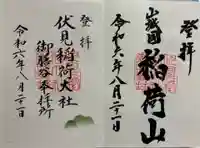 登拝
稲荷山
令和六年八月二十一日
登拝
伏見稲荷大社
御膳谷奉拝所
令和六年八月二十一日